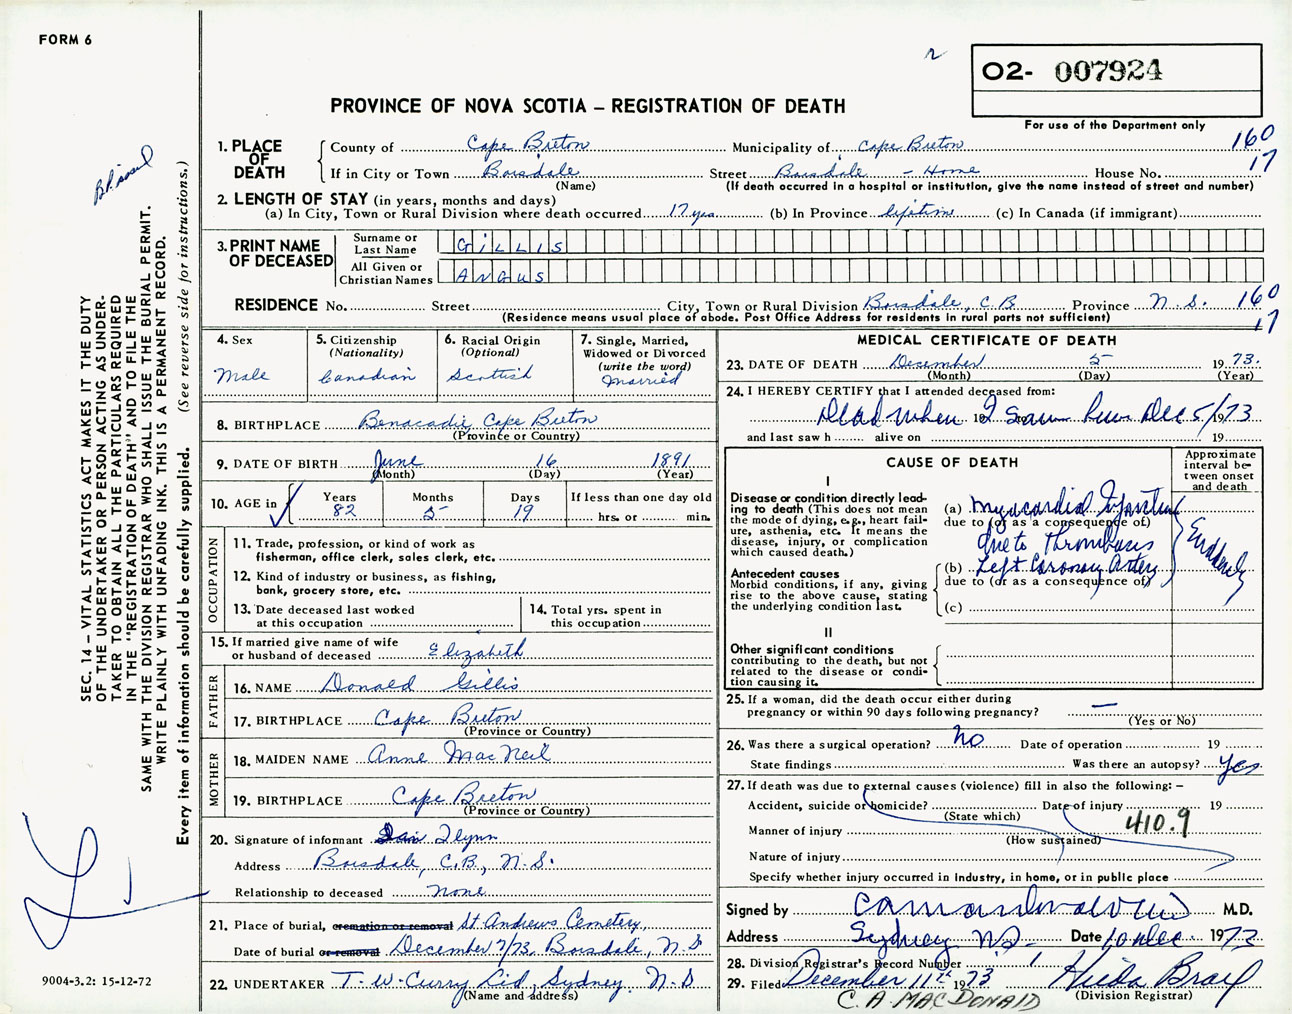 FORM 6
O2- 007924
PROVINCE OF NOVA SCOTIA – REGISTRATION OF DEATH
For use of the Department only
1. PLACE OF DEATH
County of Cape Breton Municipality of Cape Breton 160
If in City or Town Boisdale Street Boisdale - Home House No. 17
(Name) (If death occurred in a hospital or institution, give the name instead of street and number)
2. LENGTH OF STAY (in years, months and days)
(a) In City, Town or Rural Division where death occurred 17 yrs (b) In Province lifetime (c) In Canada (if immigrant)
3. PRINT NAME OF DECEASED
Surname or Last Name GILLIS
All Given or Christian Names ANGUS
RESIDENCE No. Street City, Town or Rural Division Boisdale, C.B. Province N.S. 160
(Residence means usual place of abode. Post Office Address for residents in rural parts not sufficient) 17
4. Sex
Male
5. Citizenship
(Nationality)
Canadian
6. Racial Origin
(Optional)
Scottish
7. Single, Married,
Widowed or Divorced
(write the word)
Married
8. BIRTHPLACE Benacadie Cape Breton
(Province or Country)
9. DATE OF BIRTH June 16 1891
(Month) (Day) (Year)
10. AGE in Years Months Days If less than one day old
82 5 19 hrs. or min.
OCCUPATION
11. Trade, profession, or kind of work as
fisherman, office clerk, sales clerk, etc.
12. Kind of industry or business, as fishing,
bank, grocery store, etc.
13. Date deceased last worked
at this occupation
14. Total yrs. spent in
this occupation
15. If married give name of wife
or husband of deceased Elizabeth
FATHER
16. NAME Donald Gillis
17. BIRTHPLACE Cape Breton
(Province or Country)
MOTHER
18. MAIDEN NAME Anne MacNeil
19. BIRTHPLACE Cape Breton
(Province or Country)
20. Signature of informant Dan Flynn
Address Boisdale, C.B., N.S.
Relationship to deceased None
21. Place of burial, cremation or removal St. Andrews Cemetery,
Date of burial or removal December 7/73, Boisdale, N.S
22. UNDERTAKER T.W. Curry Ltd, Sydney, N.S
(Name and address)
MEDICAL CERTIFICATE OF DEATH
23. DATE OF DEATH December 5 1973.
(Month) (Day) (Year)
24. I HEREBY CERTIFY that I attended deceased from:
Dead when 19 I saw him Dec 5/1973
and last saw h alive on 19
CAUSE OF DEATH
Approximate
interval be-
tween onset
and death
I
Disease or condition directly lead-
ing to death (This does not mean
the mode of dying, e.g., heart fail-
ure, asthenia, etc. It means the
disease, injury, or complication
which caused death.)
(a) Myocardial Infarction
due to (or as a consequence of)
due to Thrombosis
Suddenly
Antecedent causes
Morbid conditions, if any, giving
rise to the above cause, stating
the underlying condition last.
(b) Left Coronary Artery
due to (or as a consequence of)
(c)
II
Other significant conditions
contributing to the death, but not
related to the disease or condi-
tion causing it.
25. If a woman, did the death occur either during
pregnancy or within 90 days following pregnancy? —
(Yes or No)
26. Was there a surgical operation? No Date of operation 19
State findings Was there an autopsy? Yes
27. If death was due to external causes (violence) fill in also the following: –
Accident, suicide or homicide? Date of injury 19
(State which)
410.9
Manner of injury
(How sustained)
Nature of injury
Specify whether injury occurred in industry, in home, or in public place
Signed by M.D.
Address Sydney NS. Date 10 Dec. 1973
28. Division Registrar's Record Number 1
29. Filed December 11th 1973
(Division Registrar)
C. A. MACDONALD
SEC. 14 – VITAL STATISTICS ACT MAKES IT THE DUTY
OF THE UNDERTAKER OR PERSON ACTING AS UNDER-
TAKER TO OBTAIN ALL THE PARTICULARS REQUIRED
IN THE "REGISTRATION OF DEATH" AND TO FILE THE
SAME WITH THE DIVISION REGISTRAR WHO SHALL ISSUE THE BURIAL PERMIT.
WRITE PLAINLY WITH UNFADING INK. THIS IS A PERMANENT RECORD.
Every item of information should be carefully supplied. (See reverse side for instructions.)
9004-3.2: 15-12-72